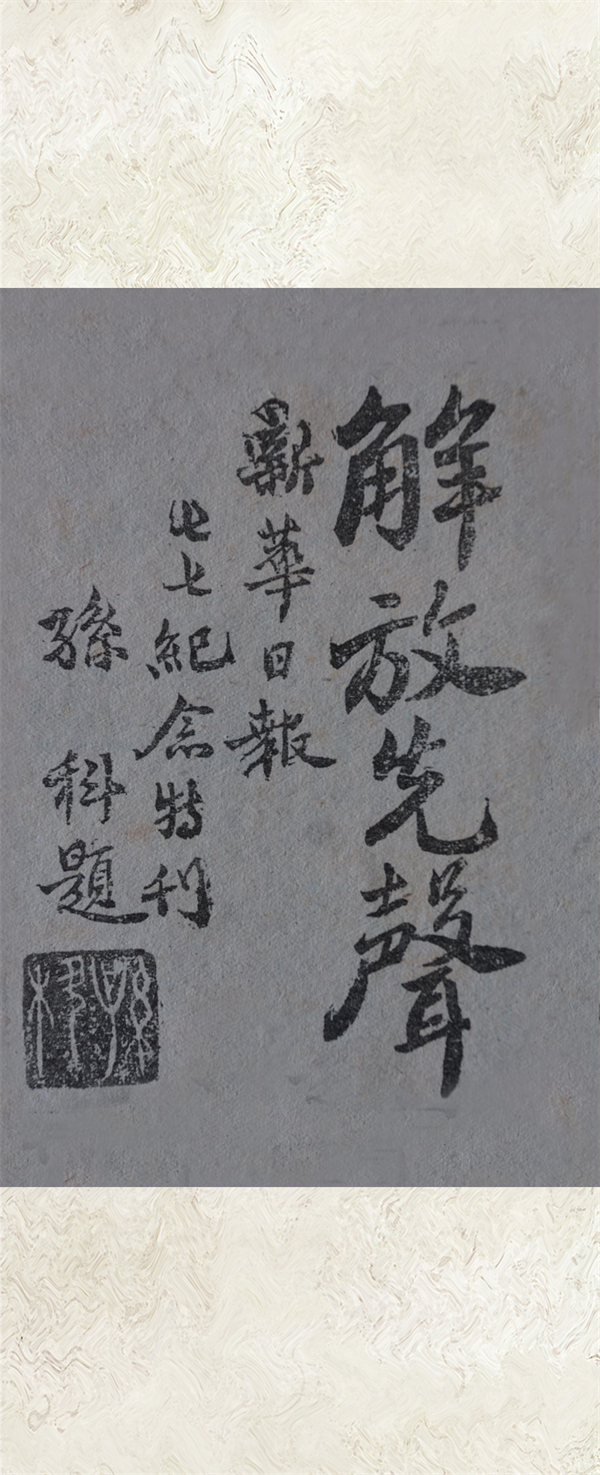 解放先聲
新華日報
七七紀念特刊
孫科題
孫科